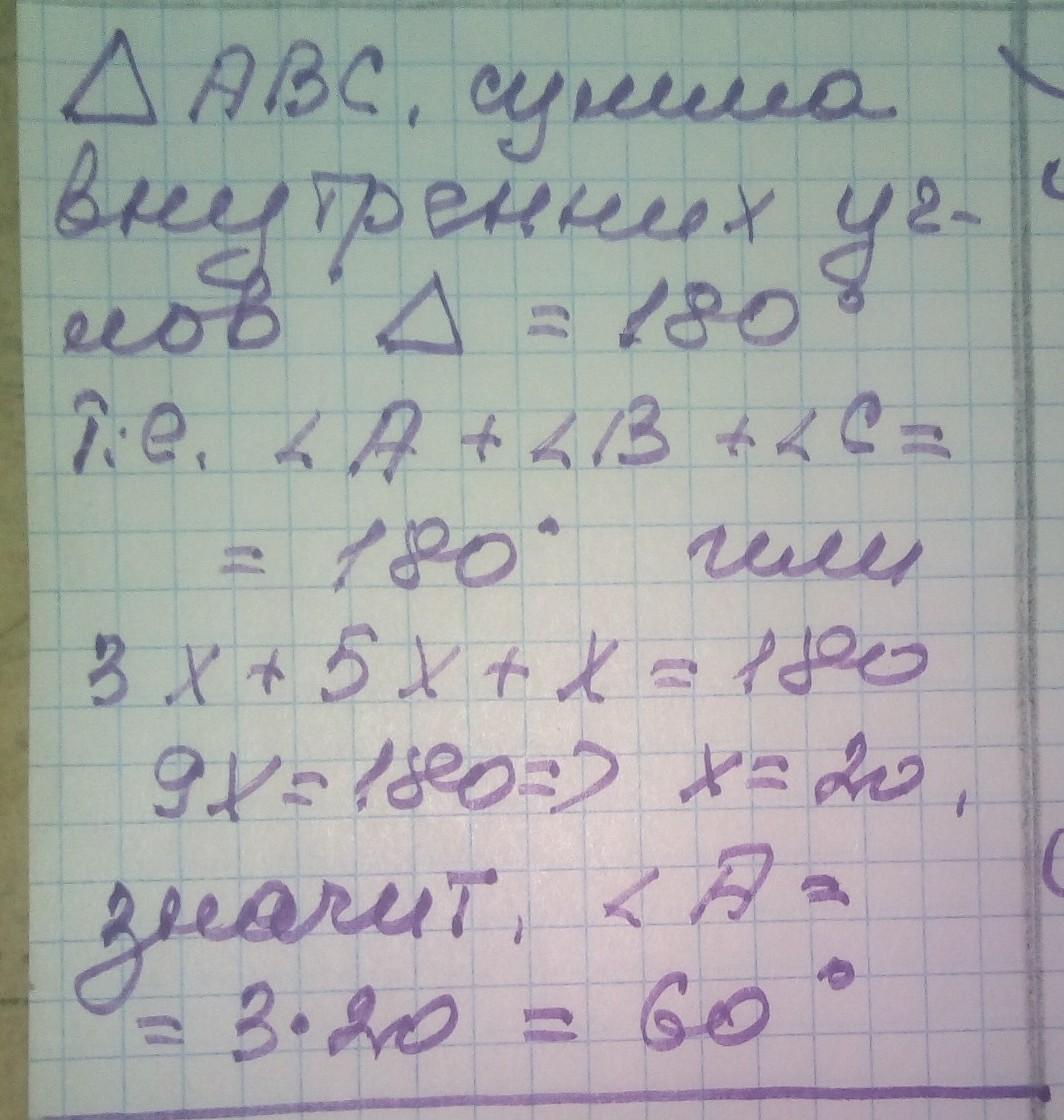 △ ABC, сумма
внутренних уг-
лов △ = 180°
т.е. ∠A + ∠B + ∠C =
= 180° или
3x + 5x + x = 180
9x = 180 => x = 20,
значит, ∠A =
= 3·20 = 60°